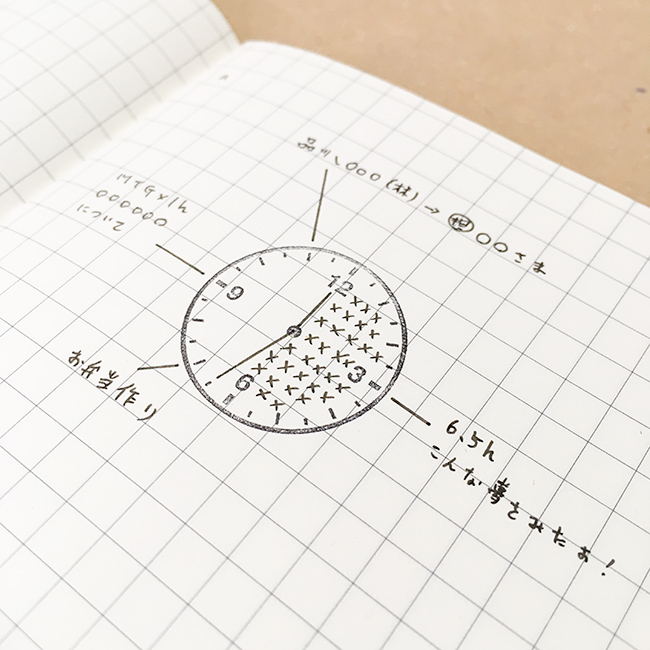 品川、〇〇〇(株)→担〇〇さま
MTG×1h
〇〇〇〇〇〇
について
12
9
3
6
お弁当作り
6.5h
こんな夢をみたよ!